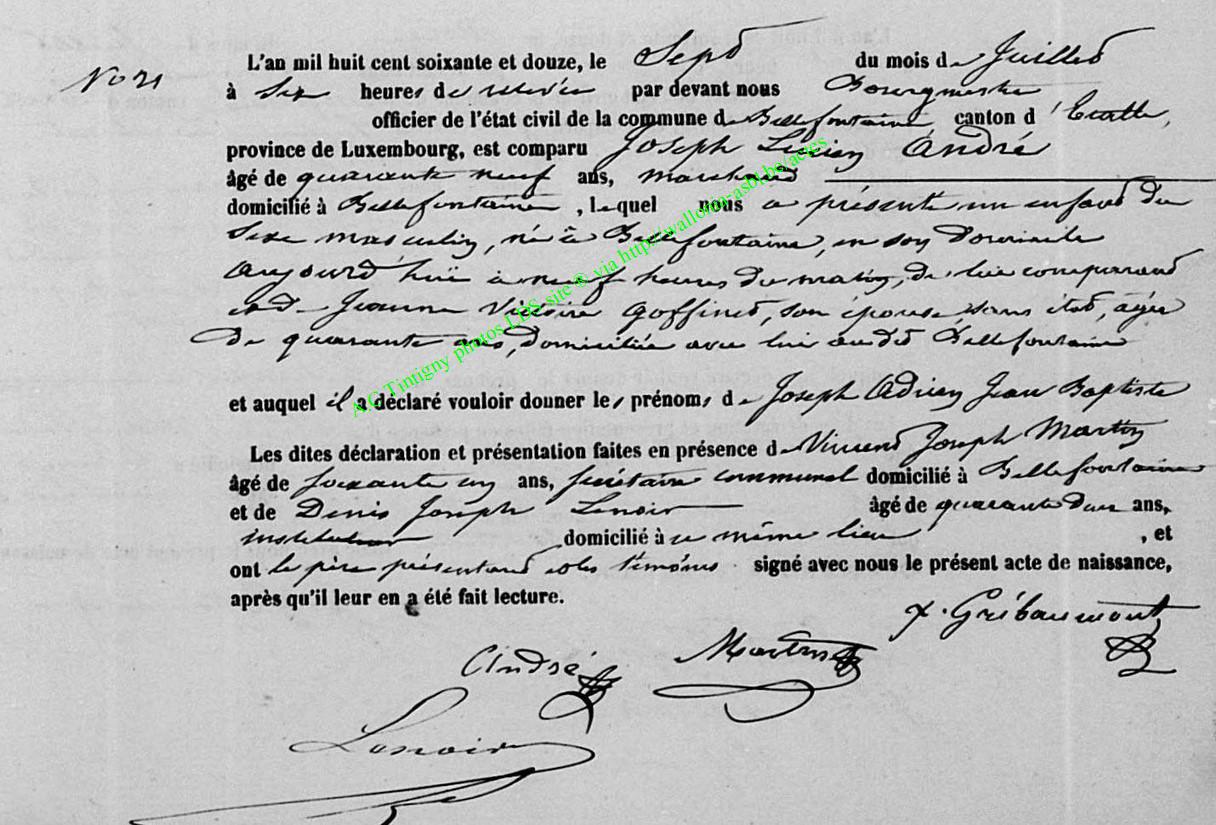 L'an mil huit cent soixante et douze, le Sept du mois de Juillet
à Six heures de relevée par devant nous Bourgmestre
officier de l'état civil de la commune de Bellefontaine canton d'Etalle,
province de Luxembourg, est comparu Joseph Lucien André
âgé de quarante neuf ans, marchand
domicilié à Bellefontaine, lequel nous a présenté un enfant du
Sexe masculin, né à Bellefontaine, en son Domicile
aujourd'hui à neuf heures du matin, de lui comparant
et de Jeanne Victoire Goffinet, son épouse sans état, âgée
De quarante ans, domiciliée avec lui audit Bellefontaine
et auquel il a déclaré vouloir donner les prénoms de Joseph Adrien Jean Baptiste
Les dites déclaration et présentation faites en présence de Vincent Joseph Martin
âgé de soixante un ans, secrétaire communal domicilié à Bellefontaine
et de Denis Joseph Lenoir âgé de quarante deux ans,
instituteur domicilié à ce même lieu, et
ont le père présentant et les témoins signé avec nous le présent acte de naissance,
après qu'il leur en a été fait lecture.
Gribaumont
André Martin
Lenoir
A.G Tintigny photos LDS site ® via http://wallonia-asbl.be/actes